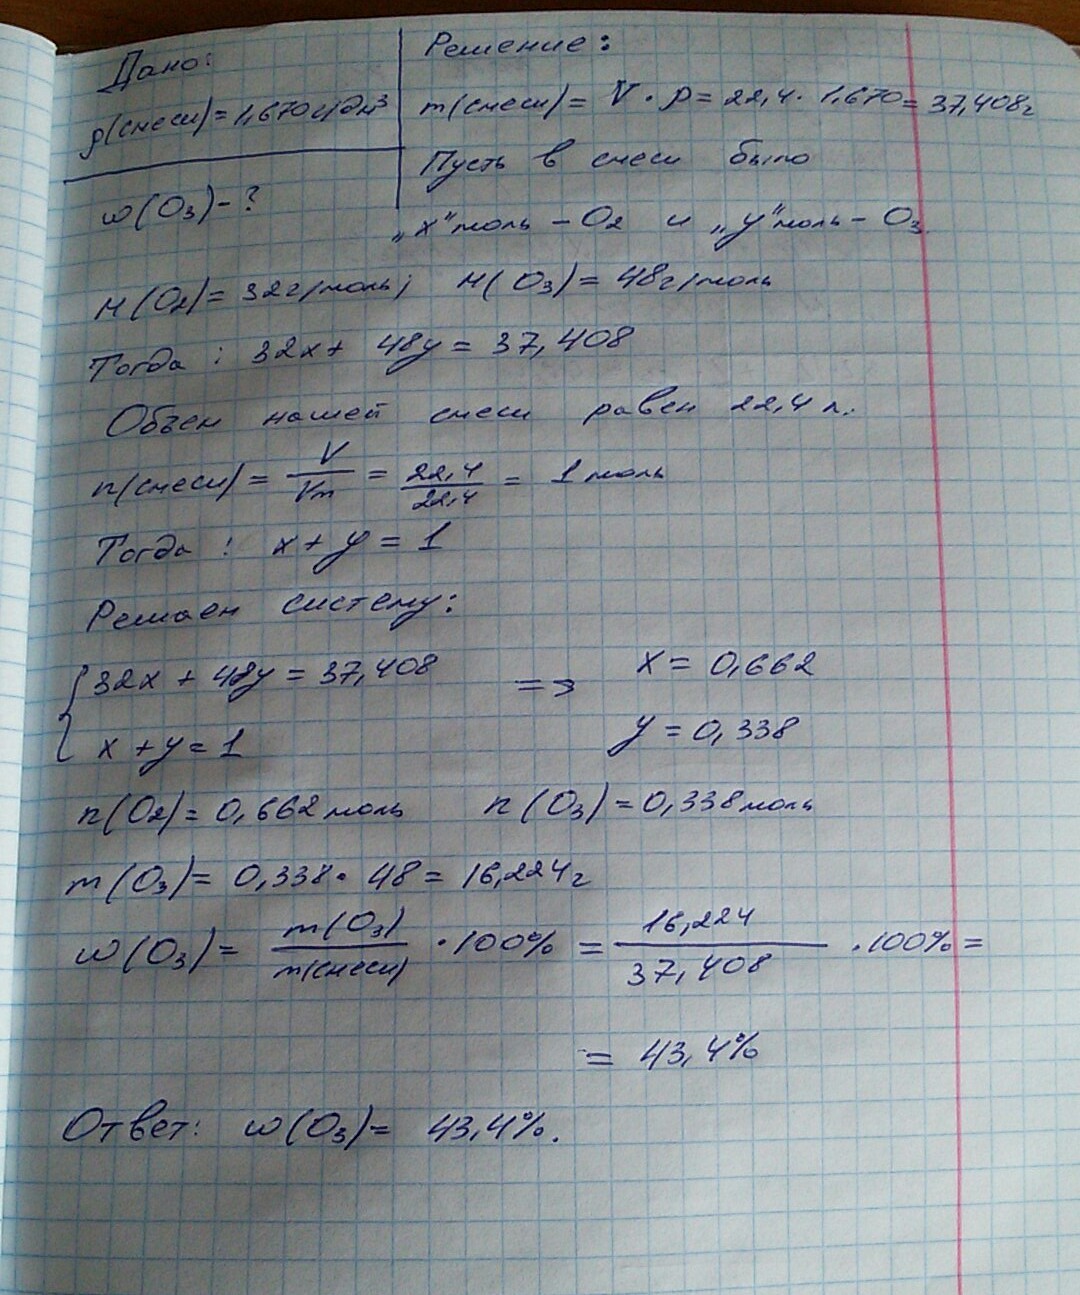 Дано:
ρ(смеси)=1,670г/дм³
w(O₃)-?
Решение:
m(смеси)= V·ρ=22,4·1,670=37,408г
Пусть в смеси было
„x" моль - O₂ и „y" моль - O₃.
M(O₂)=32г/моль; M(O₃)=48г/моль
Тогда: 32x+48y=37,408
Объем нашей смеси равен 22,4л.
n(смеси)= V/Vm = 22,4/22,4 = 1моль
Тогда: x+y=1
Решаем систему:
{32x+48y=37,408 => x=0,662
x+y=1 y=0,338
n(O₂)=0,662моль n(O₃)=0,338моль
m(O₃)=0,338·48=16,224г
w(O₃)= m(O₃)/m(смеси) ·100% = 16,224/37,408 ·100%=
= 43,4%
Ответ: w(O₃)= 43,4%.